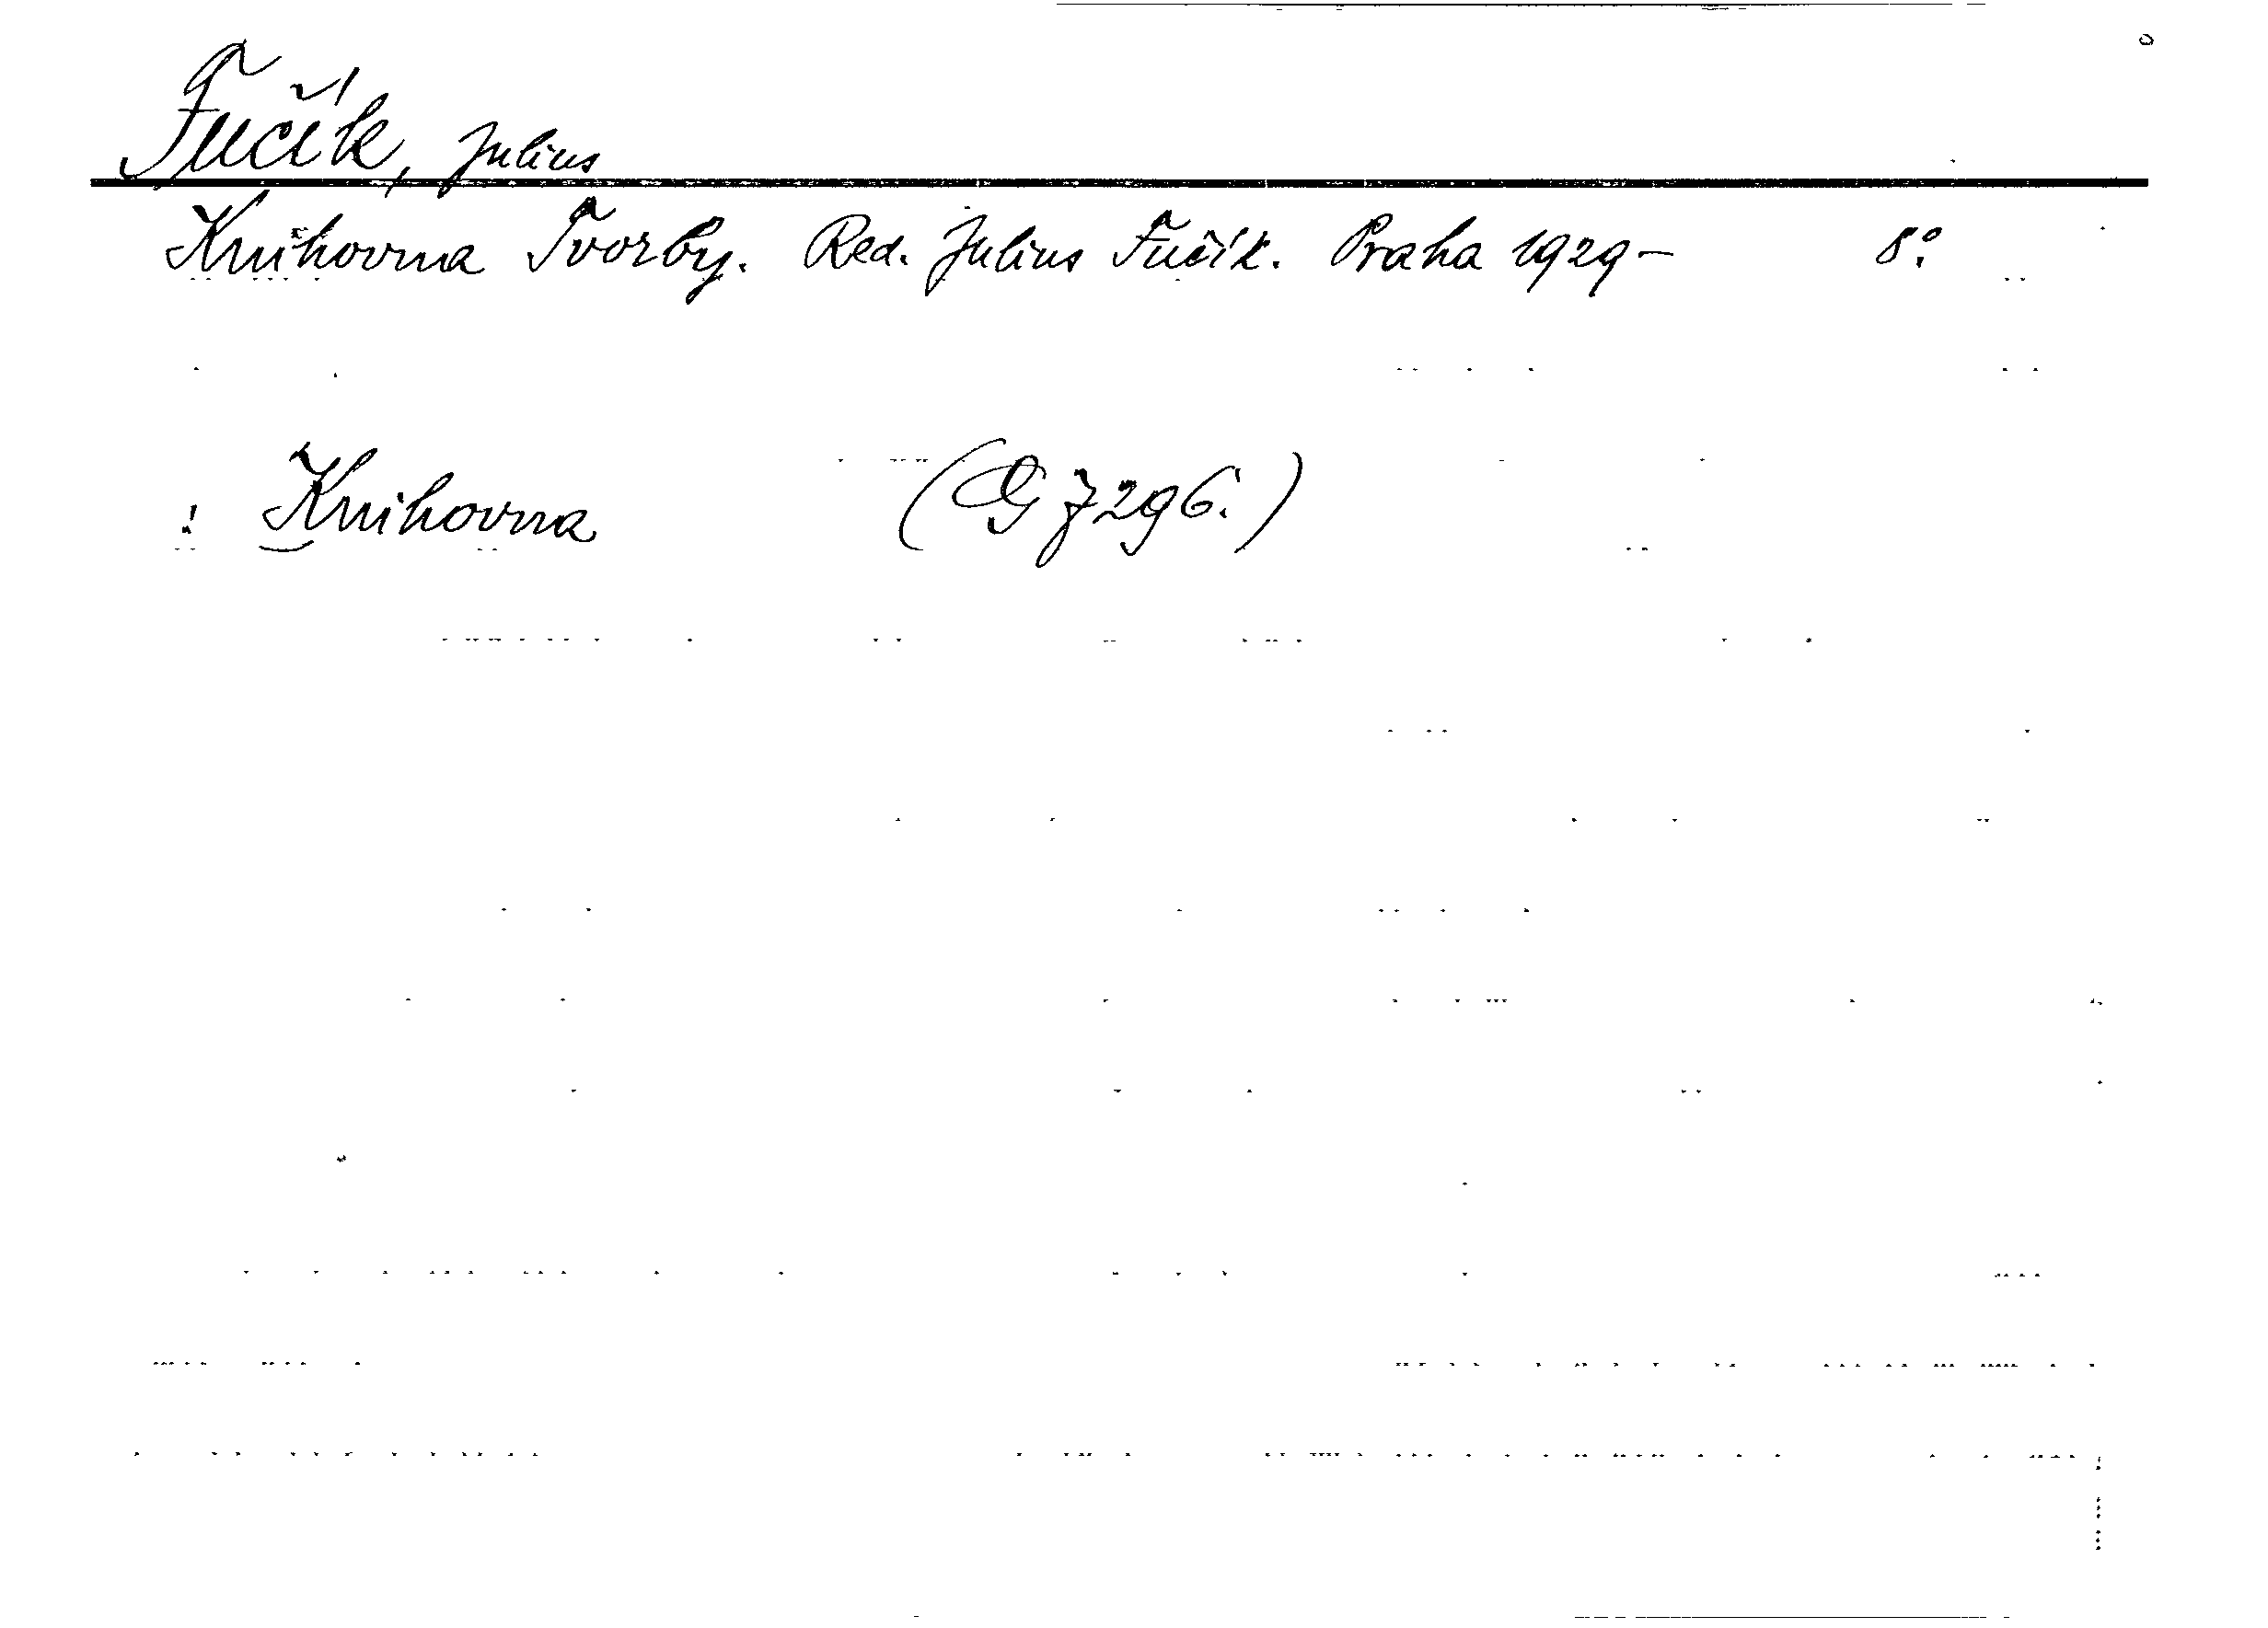 Fučík, Julius
Knihovna Tvorby. Red. Julius Fučík. Praha 1929- 8°.
! Knihovna (G 7296.)